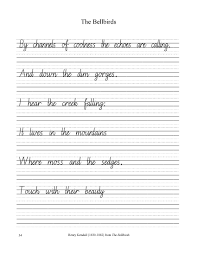 The Bellbirds
By channels of coolness the echoes are calling,
And down the dim gorges,
I hear the creek falling;
It lives in the mountains
Where moss and the sedges,
Touch with their beauty
Henry Kendall (1839-1882) from The Bellbirds